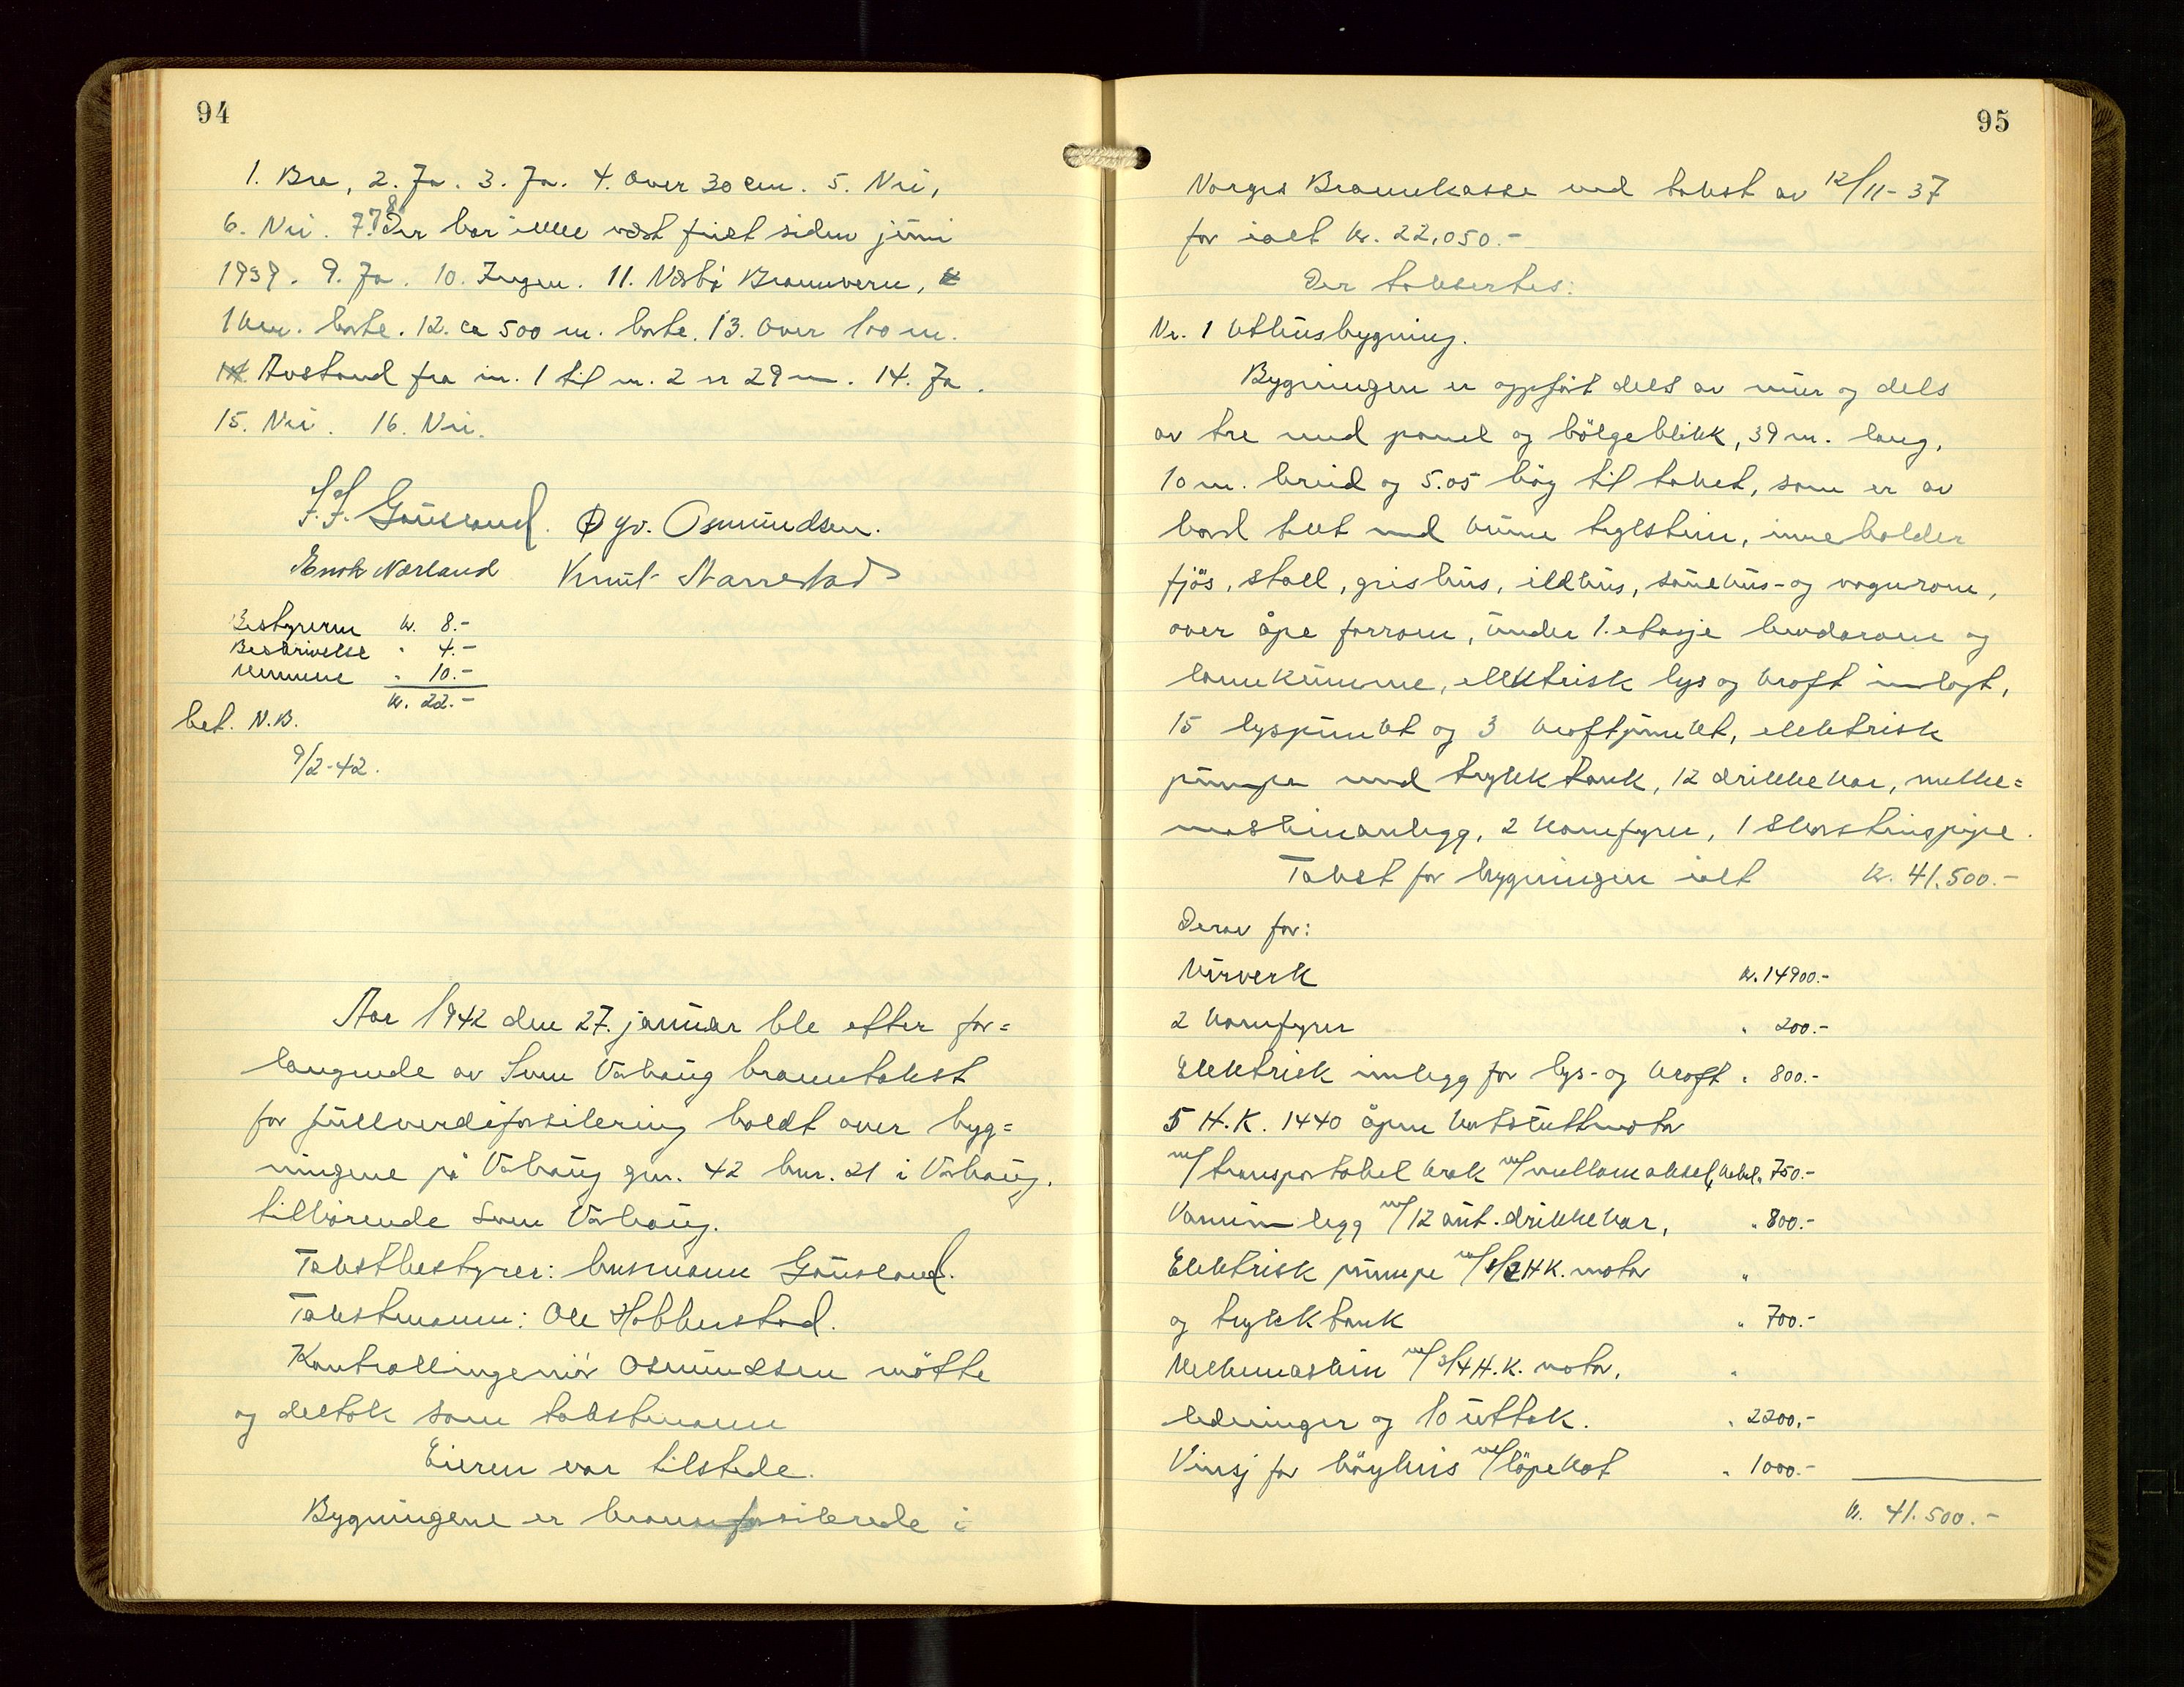 94
1. Bra, 2. Ja. 3. Ja. 4. Over 30 cm. 5. Nei,
6. Nei. 7. 7 8. Der har ikke vært fuet siden juni
1939. 9. Ja. 10. Ingen. 11. Nærbø Brannvern,
1 km. borte. 12. ca 500 m. borte. 13. Over 100 m.
Avstand fra nr. 1 til nr. 2 er 29 m. 14. Ja.
15. Nei. 16. Nei.
J. J. Gausland. Øyv. Osmundsen.
Enok Nærland Knut Narrestad
Bestyreren kr. 8.-
Beskrivelse " 4.-
Mennene " 10.-
kr. 22.-
bet. N.B.
9/2-42.
Aar 1942 den 27. januar ble efter for=
langende av Sven Varhaug branntakst
for fullverdiforsikring holdt over byg=
ningene på Varhaug gnr. 42 bnr. 21 i Varhaug.
tilhørende Sven Varhaug.
Takstbestyrer: lensmann Gausland.
Takstmann: Ole Hobberstad.
Kontrollingeniør Osmundsen møtte
og deltok som takstmann
Eieren var tilstede.
Bygningene er brannforsikrede i
95
Norges Brannkasse med takst av 12/11-37
for ialt kr. 22,050.-
Der taksertes:
Nr. 1 Uthusbygning.
Bygningen er oppført dels av mur og dels
av tre med panel og bølgeblikk, 39 m. lang,
10 m. breid og 5.05 høg til taket, som er av
bord tekt med krum teglstein, inneholder
fjøs, stall, grishus, ildhus, sauehus- og vognrom,
over åpe forrom, under 1. etasje lendarom og
lannkumme, elektrisk lys og kraft innlagt,
15 lyspunkt og 3 kraftpunkt, elektrisk
pumpe med trykktank, 12 drikkekar, melke=
maskinanlegg, 2 kornfyrer, 1 skorsteinspipe.
Takst for bygningen ialt kr. 41.500.-
Derav for:
Murverk kr. 14900.-
2 kornfyrer " 200.-
Elektrisk innlegg for lys- og kraft " 800.-
5 H.K. 1440 åpen kortsluttmotor
m/transportabel krak m/mellomaksel, kabel " 750.-
Vanninnlegg m/12 aut. drikkekar, " 800.-
Elektrisk pumpe m/1/2 H.K. motor "
og trykktank " 700.-
Melkemaskin m/3/4 H.K. motor, "
ledninger og 10 uttak. " 2200.-
Vinsj for høyhus m/løpekat " 1000.-
kr. 41.500.-